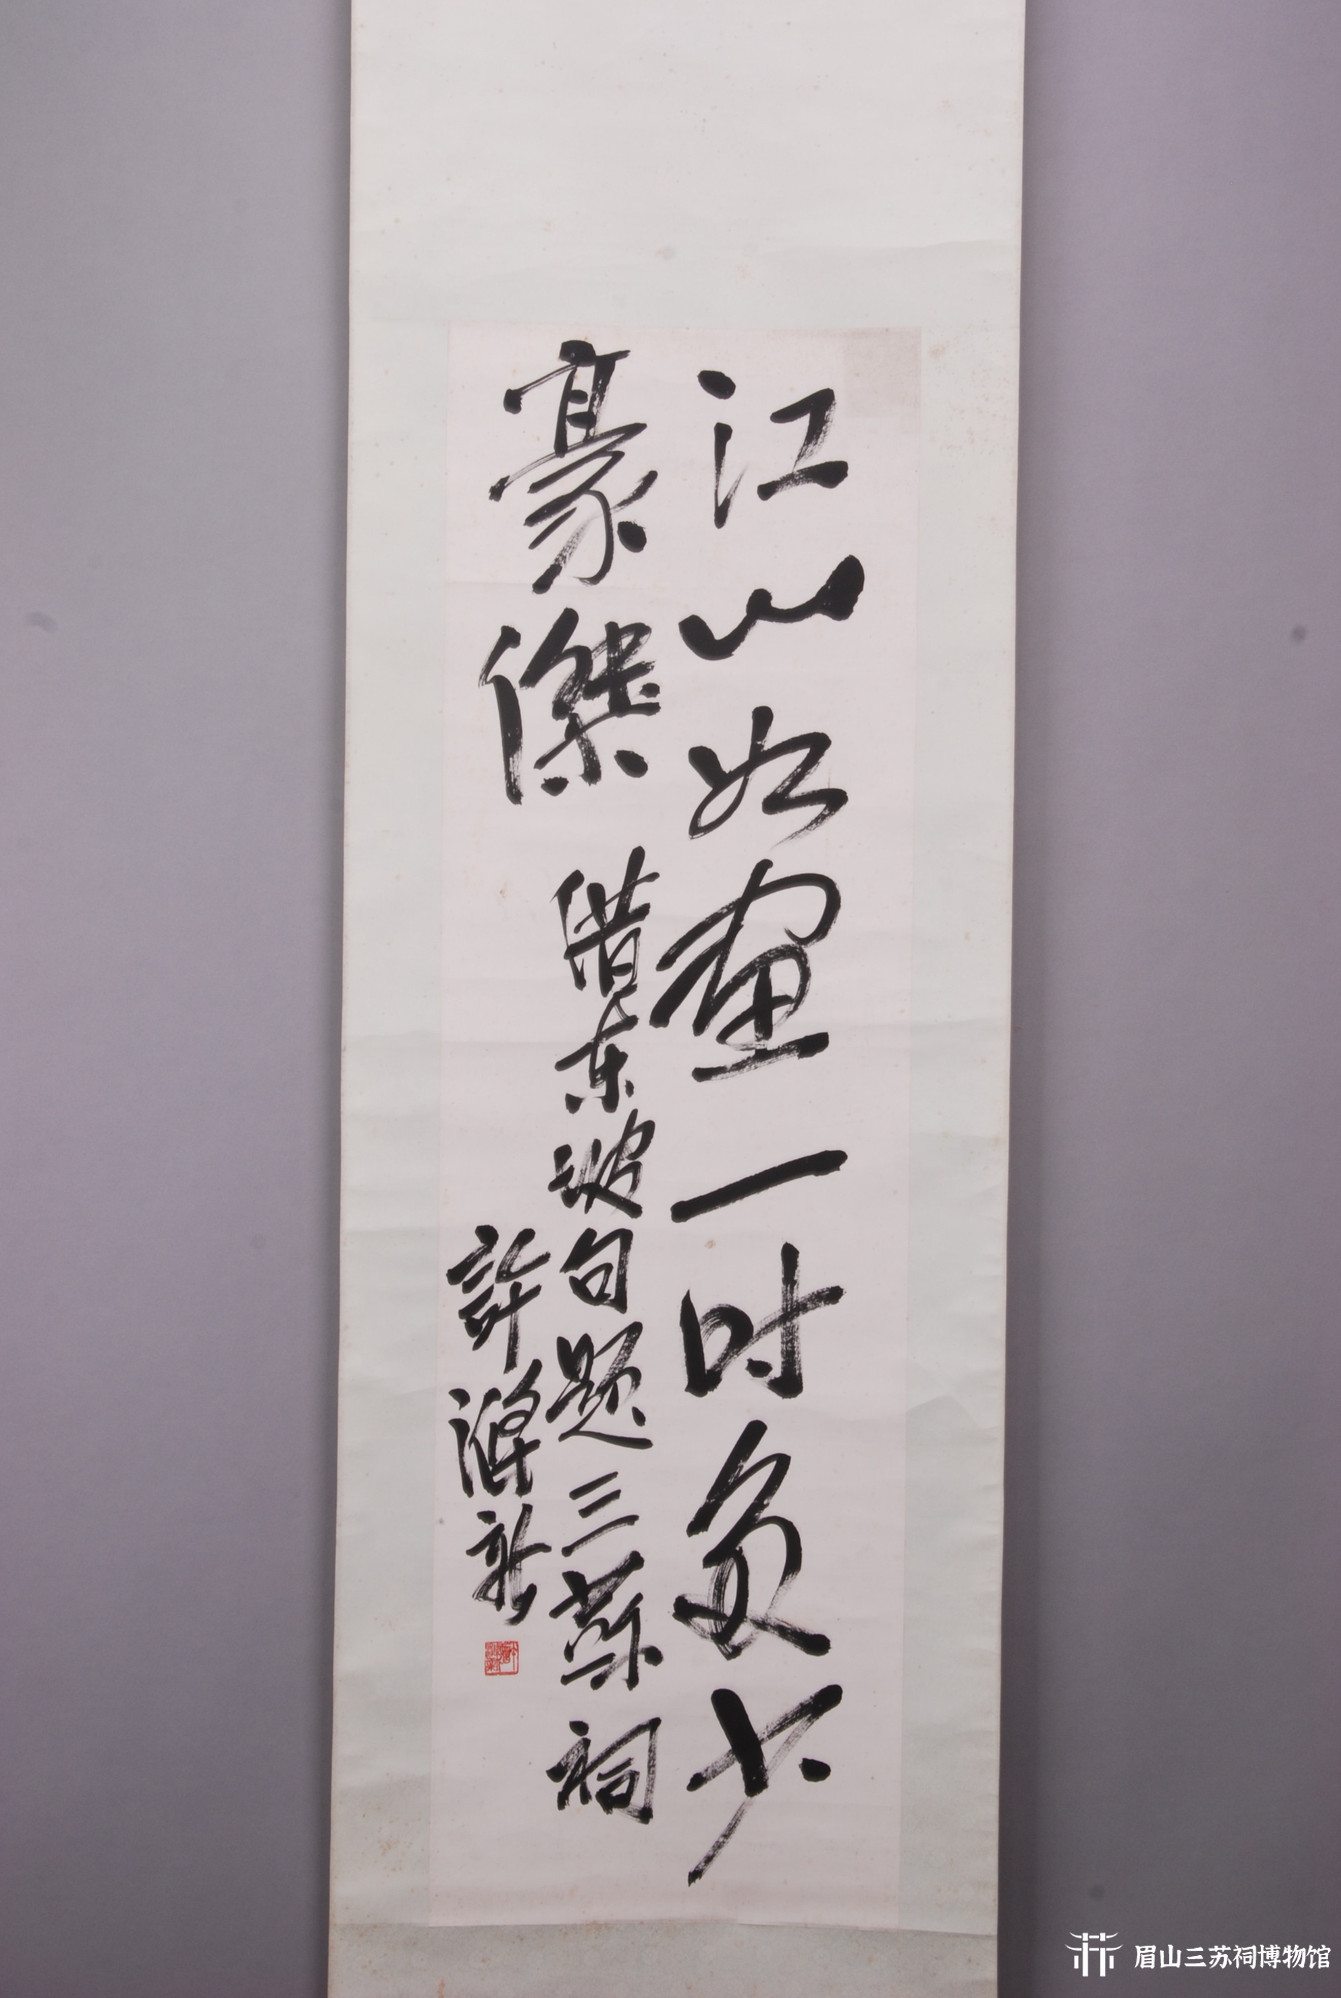 江山如画一时多少
豪傑
借东波句题三蘇祠
許漁新
眉山三苏祠博物馆